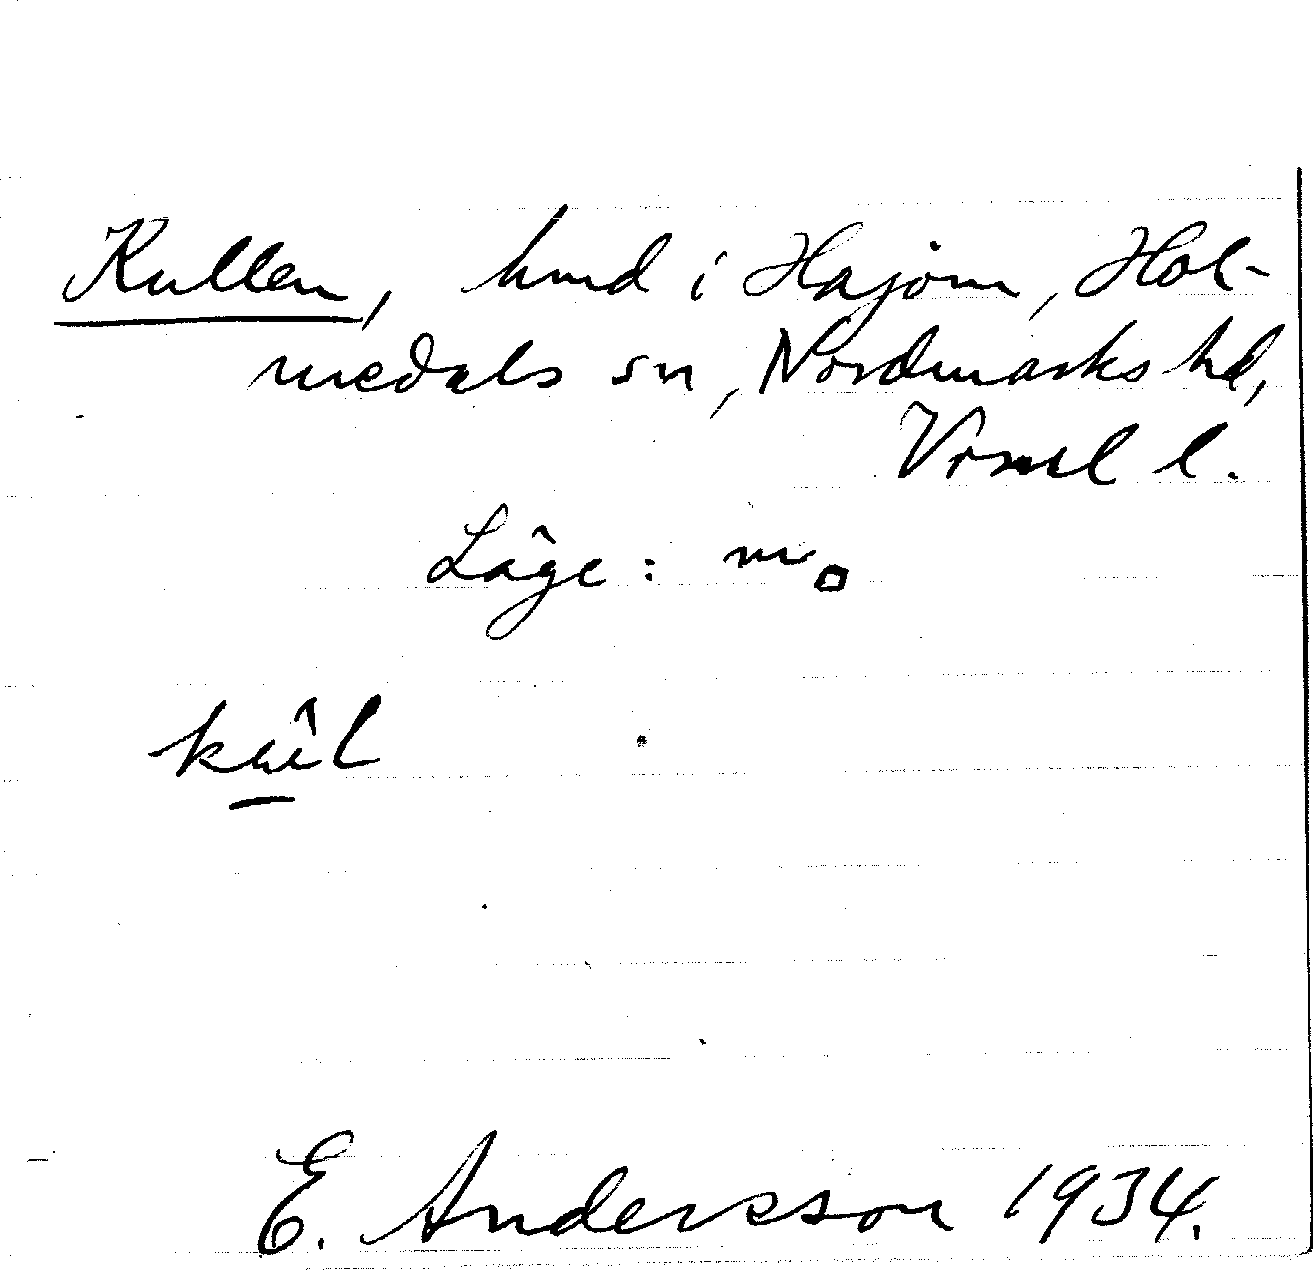 Kullen, hmd i Hajom, Hol-
medals sn, Nordmarks hd,
Vrml l.
Läge: m
E. Andersson 1934.